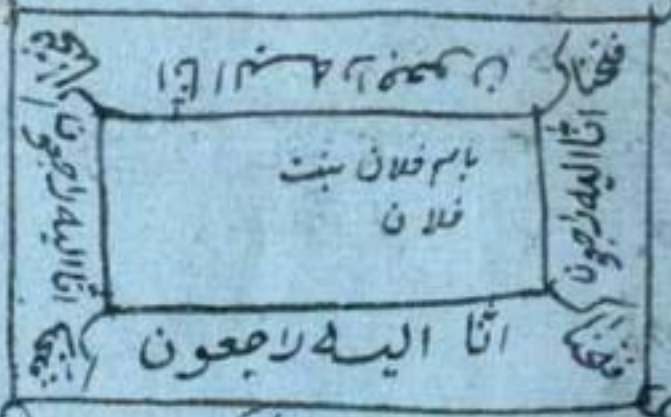 انا اليه راجعون
فتحنا
انا اليه راجعون
باسم فلان بنت
فلان
انا اليه راجعون
انا اليه راجعون
فتحنا